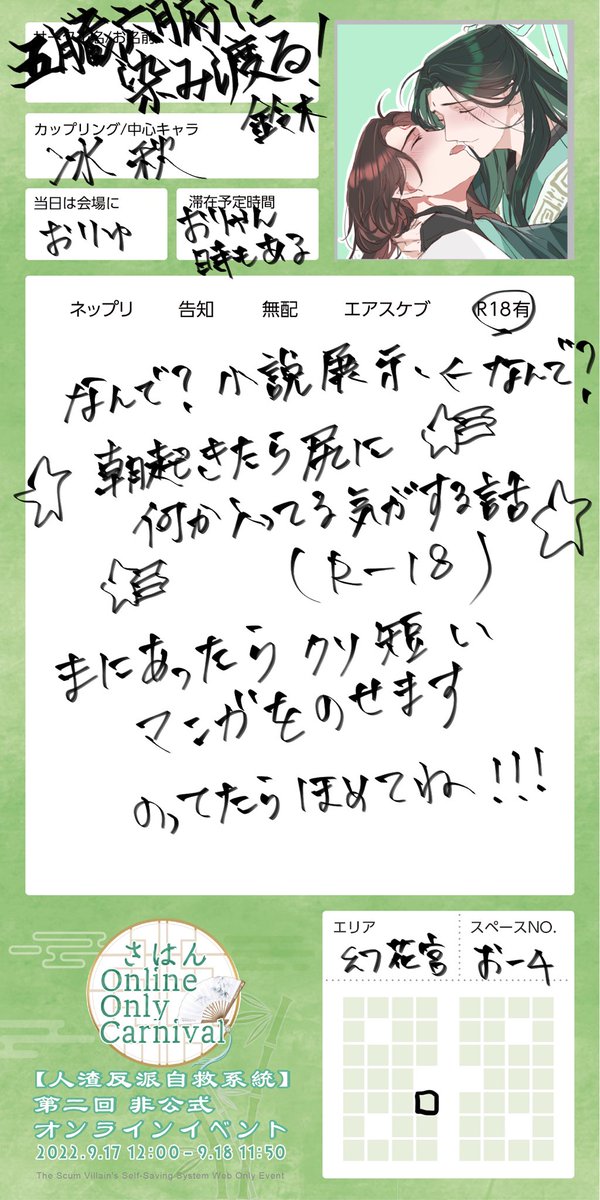 サークル名/お名前
五臓六腑に
染み渡る!
鈴木
カップリング/中心キャラ
冰秋
当日は会場に
おりゅ
滞在予定時間
おりゃん
時もある
ネップリ 告知 無配 エアスケブ R18有
なんで?小説展示、←なんで?
朝起きたら尻に
何か入ってる気がする話
(R-18)
まにあったらクソ短い
マンガをのせます
のってたらほめてね!!!
さはん
Online
Only
Carnival
【人渣反派自救系統】
第二回 非公式
オンラインイベント
2022.9.17 12:00-9.18 11:50
The Scum Villain's Self-Saving System Web Only Event
エリア
幻花宮
スペースNO.
おー4